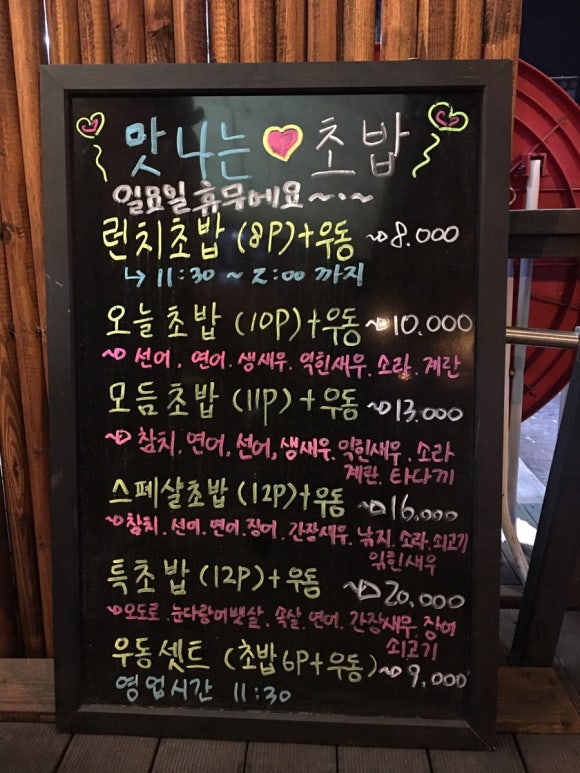 맛나는 초밥
일요일 휴무에요~·~
런치초밥 (8P)+우동 ~8.000
↳ 11:30 ~ 2:00 까지
오늘초밥 (10P)+우동 ~10.000
~ 선어, 연어. 생새우. 익힌새우. 소라. 계란
모듬초밥 (11P)+우동 ~13.000
~ 참치. 연어, 선어, 생새우. 익힌새우. 소라
계란. 타다끼
스페샬초밥 (12P)+우동 ~16.000
~참치. 선어. 연어. 장어. 간장새우. 낚지. 소라. 쇠고기
익힌새우
특초밥 (12P)+우동 ~20.000
~오도로. 눈다랑어뱃살. 속살. 연어. 간장새우. 장어
쇠고기
우동셋트 (초밥6P+우동)~9.000
영업시간 11:30